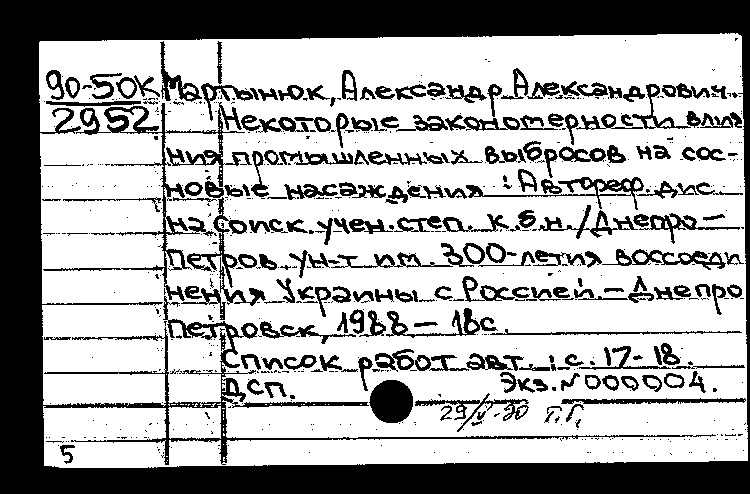 90-50К Мартынюк, Александр Александрович.
2952 Некоторые закономерности влия
ния промышленных выбросов на сос-
новые насаждения : Автореф. дис.
на соиск. учен. степ. к.б.н. / Днепро-
петров. ун-т им. 300-летия воссоеди
нения Украины с Россией. - Днепро
петровск, 1988 - 18с.
Список работ авт.: с. 17-18.
ДСП. Экз. № 000004.
29/V-90 Т.Г.
5